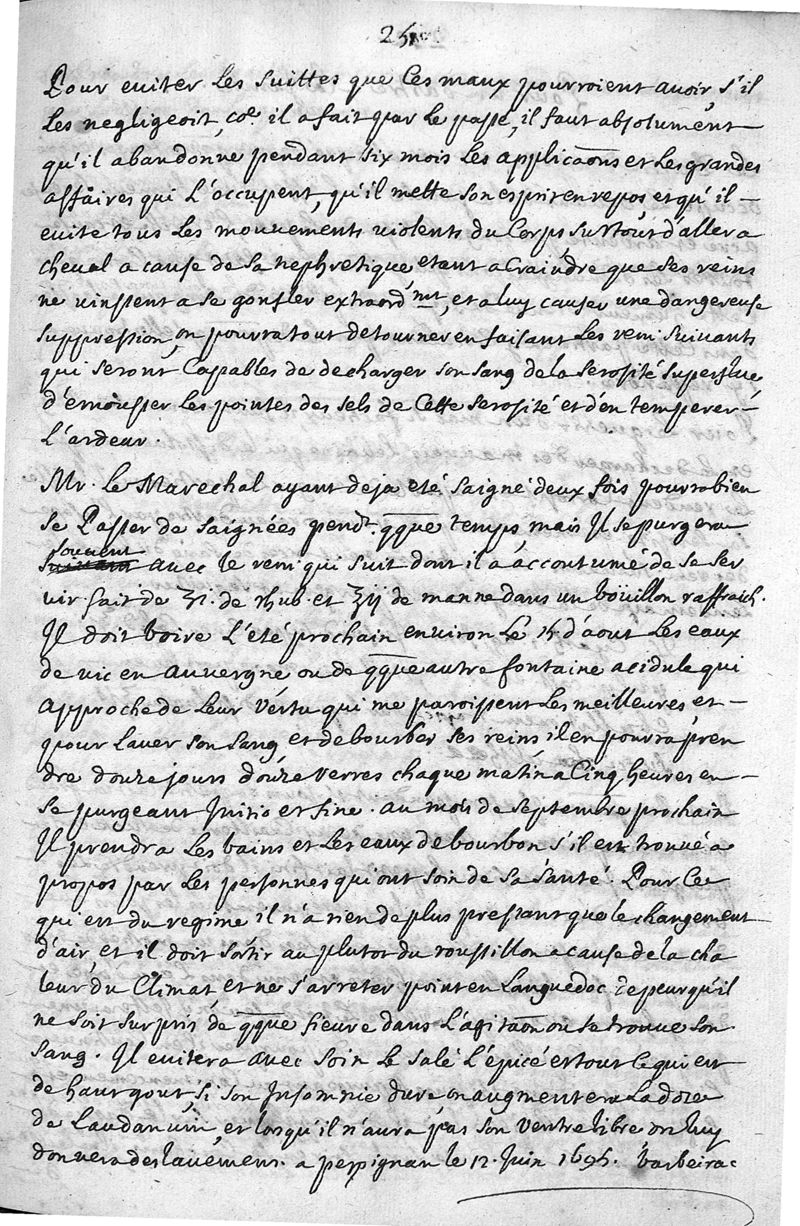 25
Pour eviter Les suittes que Ces maux pourroient avoir, s'il
Les negligeoit, coe il a fait par Le passe, il faut absolument
qu'il abandonne pendant six mois Les applicaons et Les grandes
affaires qui L'occupent, qu'il mette son esprit en repos et qu'il -
evite tous Les mouvements violents du Corps surtout d'aller a
cheval a cause de sa nephretique, etant a Craindre que ses reins
ne vinssent a se gonfler extraordnmt, et a luy causer une dangereuse
suppression, on pourra tout detourner en faisant Les rem suivants
qui seront Capables de decharger son sang de la serosité superflue,
d'emousser Les pointes des sels de Cette serosité et d'en temperer -
L'ardeur.
Mr. Le Marechal ayant deja eté saigné deux fois pourra bien
se Passer de saignées pendt. qque temps, mais Il se purgera
souvent
avec le rem qui suit dont il a accoutumé de se ser
vir fait de ʒi. de rhub. et ℥ij de manne dans un boüillon raffraich.
Il doit boire L'été prochain environ Le 15 d'aout Les eaux
de vic en auvergne ou de qque autre fontaine acidule qui
approche de Leur vertu qui me paroissent Les meilleures et -
pour Laver son sang et debourber ses reins, il en pourra pren
dre douze jours douze verres chaque matin a Cinq heures en -
se purgeant Initio et fine. au mois de septembre prochain
Il prendra Les bains et Les eaux de bourbon s'il est trouvé a
propos par Les personnes qui ont soin de sa santé. Pour Ce
qui est du regime il n'a rien de plus pressant que le changement
d'air, et il doit sortir au plutot du roussillon a cause de la cha
leur du Climat, et ne s'arreter point en Languedoc de peur qu'il
ne soit surpris de qque fievre dans L'agitaon ou se trouve son
sang. Il evitera avec soin Le salé L'epicé et tout Ce qui est
de haut gout, si son Insomnie dure, on augmentera La doze
de Laudanum, et lorsqu'il n'aura pas son ventre libre on luy
donnera des lavemens. a perpignan le 12. Juin 1695. barbeirac